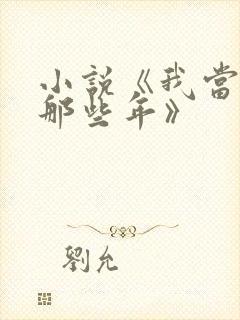 小説《我當
那些年》
劉允